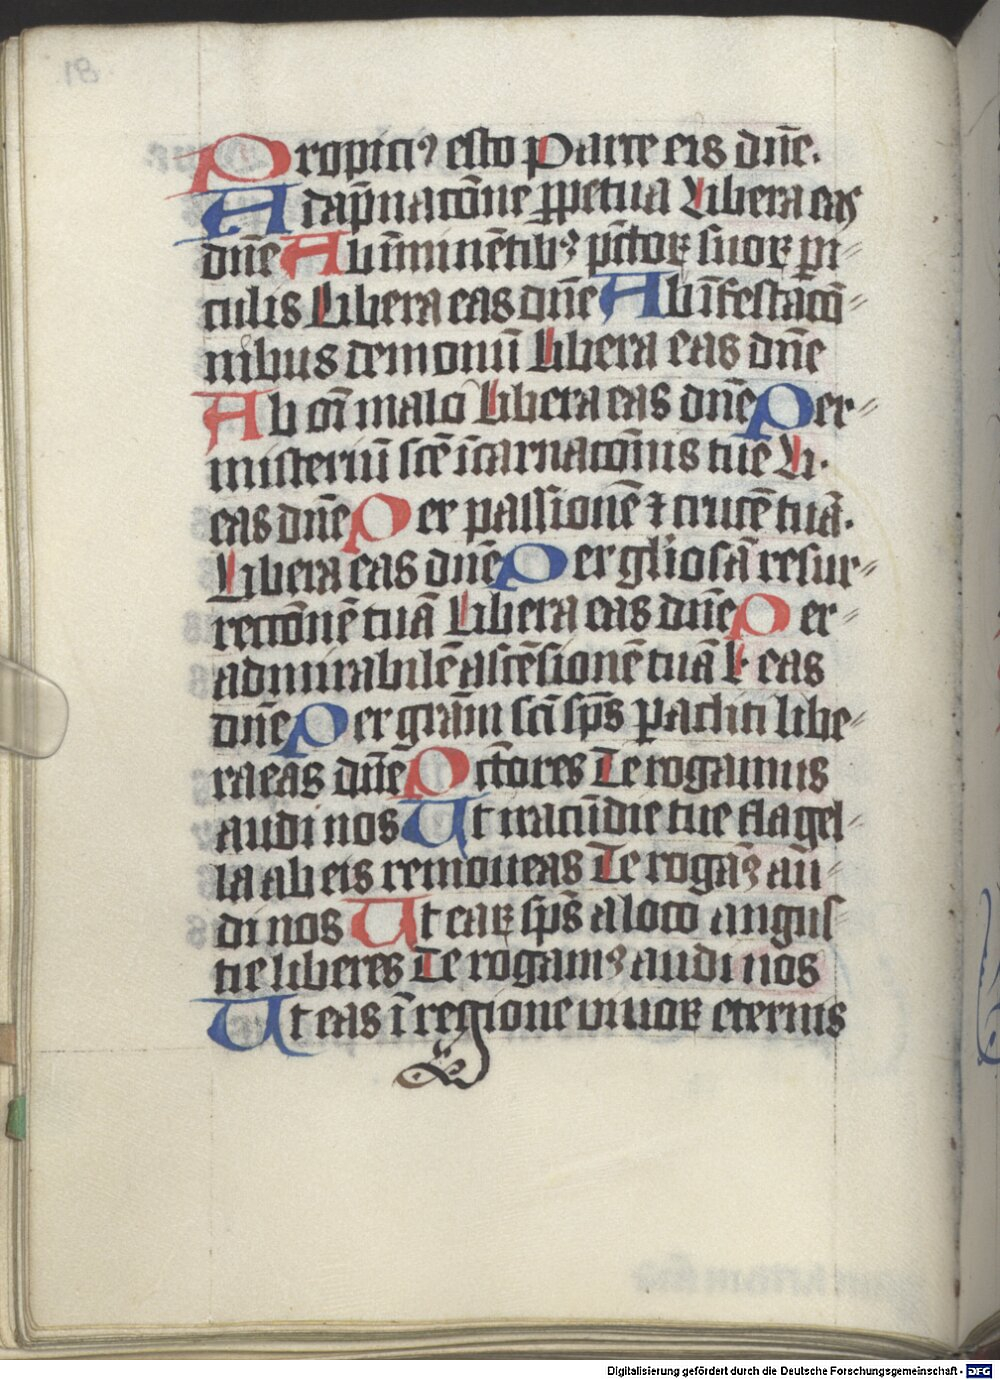 Propici⁹ esto Parce eis dn̄e.
A dāpnacōne ꝑpetua Libera eas
dn̄e Ab īminētib⁹ pct̄oꝝ suoꝝ ꝑi-
culis Libera eas dn̄e Ab īfestacō-
nibus demonuū Libera eas dn̄e
Ab oī malo Libera eas dn̄e Per-
misteriū scē īcarnacōnis tue Li.
eas dn̄e Per passionē ⁊ crucē tuā.
Libera eas dn̄e Per gliosā resur-
rectōnē tuā Libera eas dn̄e Per-
admirabilē ascēsionē tuā L eas
dn̄e Per grām sci sp̄s ꝑacliti libe-
ra eas dn̄e Pct̄ores Te rogamus
audi nos Ut iracūdie tue flagel-
la ab eis remoueas Te rogam⁹ au-
di nos Ut eaꝝ sp̄s a loco angus-
tie liberes Te rogam⁹ audi nos
Ut eas ī regione viuoꝝ eternis
Digitalisierung gefördert durch die Deutsche Forschungsgemeinschaft - DFG